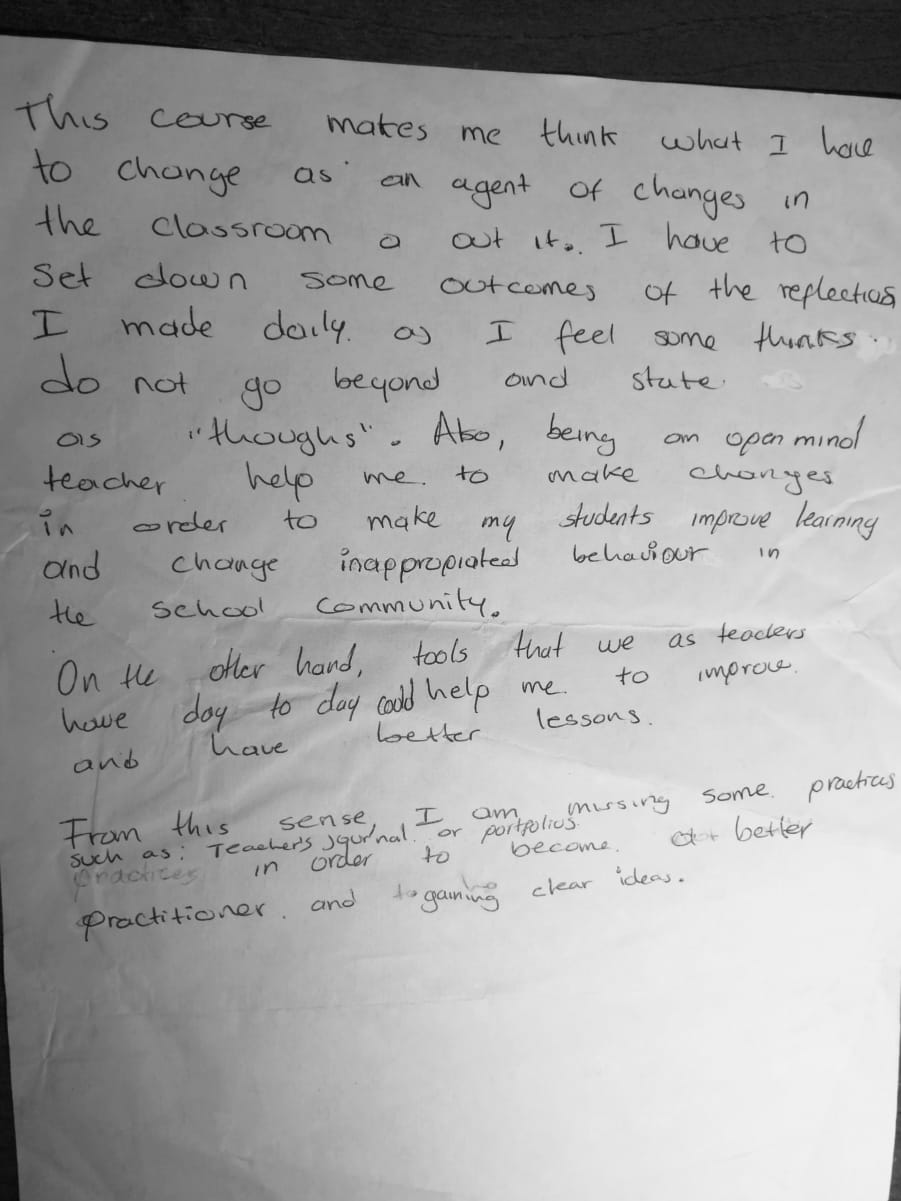 This course makes me think what I have
to change as an agent of changes in
the classroom o out it. I have to
set down some outcomes of the reflections
I made daily. as I feel some thinks.
do not go beyond and state.
as "thoughs". Also, being an open mind
teacher. help me. to make changes
in order to make my students improve learning
and change inappropiated behaviour in
the school community.
On the other hand, tools that we as teachers
have day to day could help me. to improve.
and have better lessons.
From this sense, I am missing some. practices
such as: Teacher's journal. or portfolios.
practices in order to become. a better
practitioner. and to gaining clear ideas.